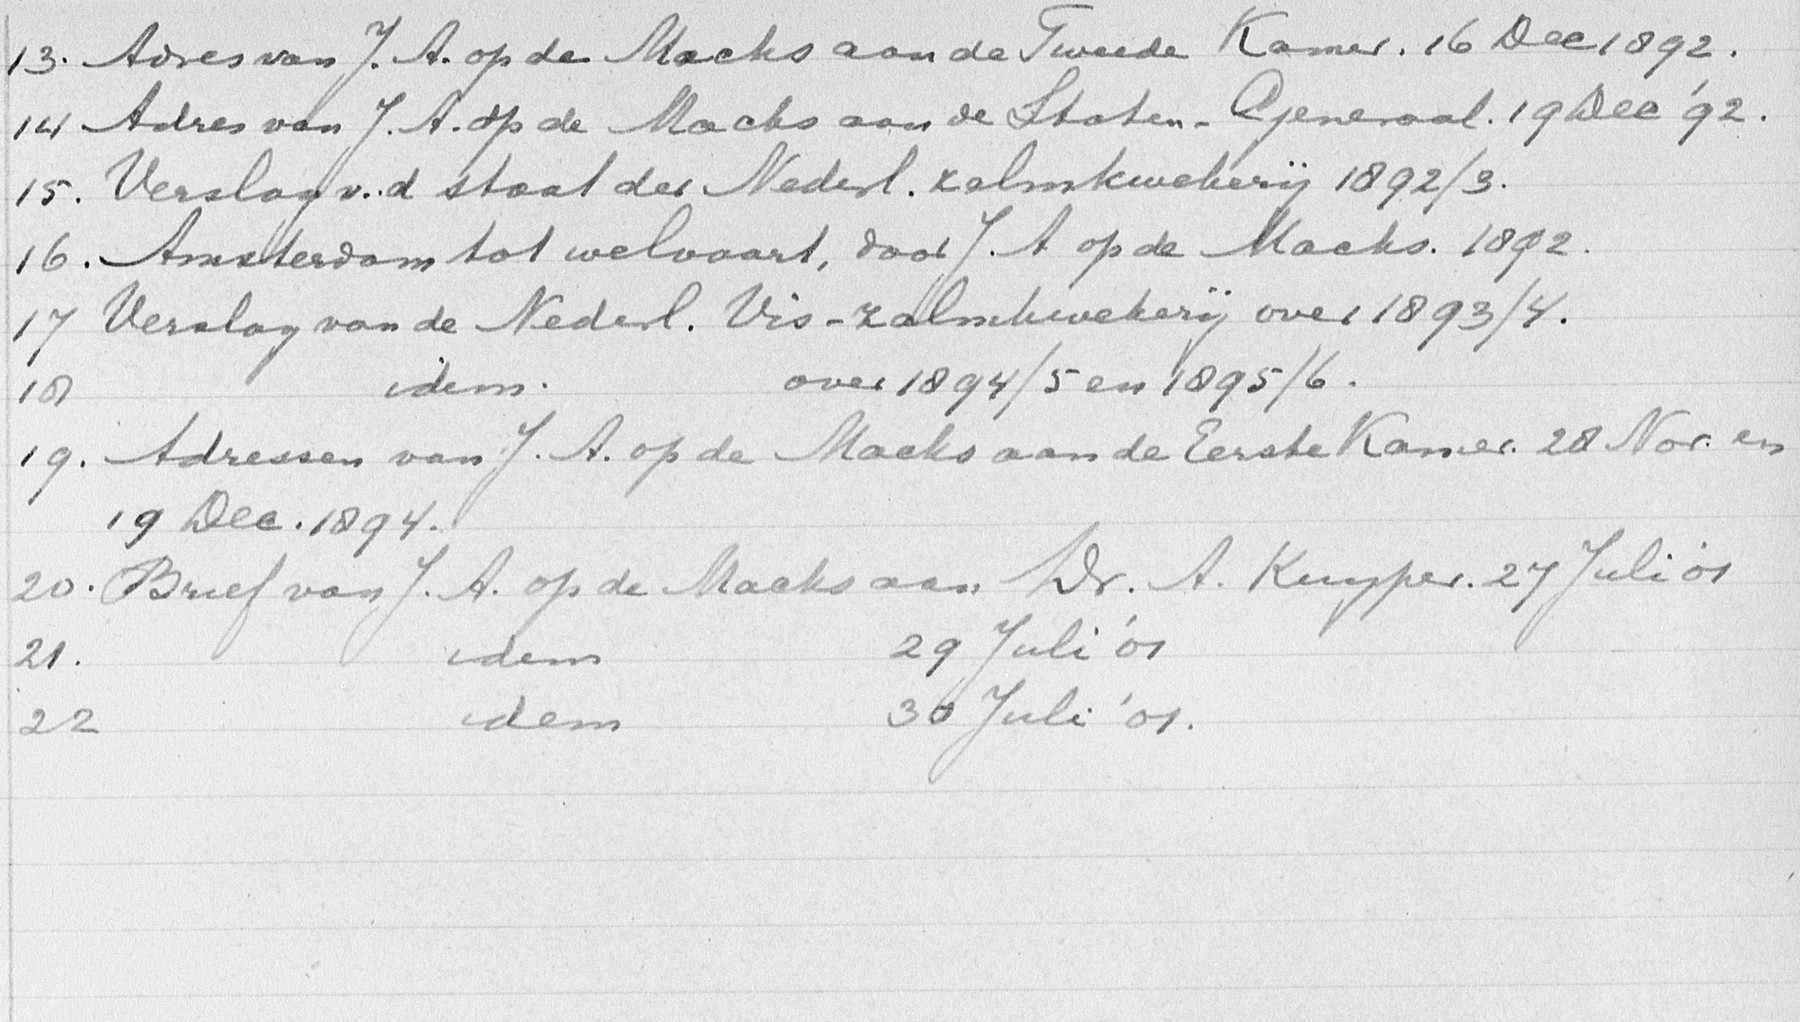 13. Adres van J. A. op de Macks aan de Tweede Kamer. 16 Dec 1892.
14 Adres van J. A. op de Macks aan de Staten-Generaal. 19 Dec '92.
15. Verslag v. d staat der Nederl. zalmkwekerij 1892/3.
16. Amsterdam tot welvaart, door J. A op de Macks. 1892.
17 Verslag van de Nederl. Vis-zalmkwekerij over 1893/4.
18 idem. over 1894/5 en 1895/6.
19. Adressen van J. A. op de Macks aan de Eerste Kamer. 28 Nov. en
19 Dec. 1894.
20. Brief van J. A. op de Macks aan Dr. A. Kuyper. 27 Juli '01
21. idem 29 Juli '01
22 idem 30 Juli '01.